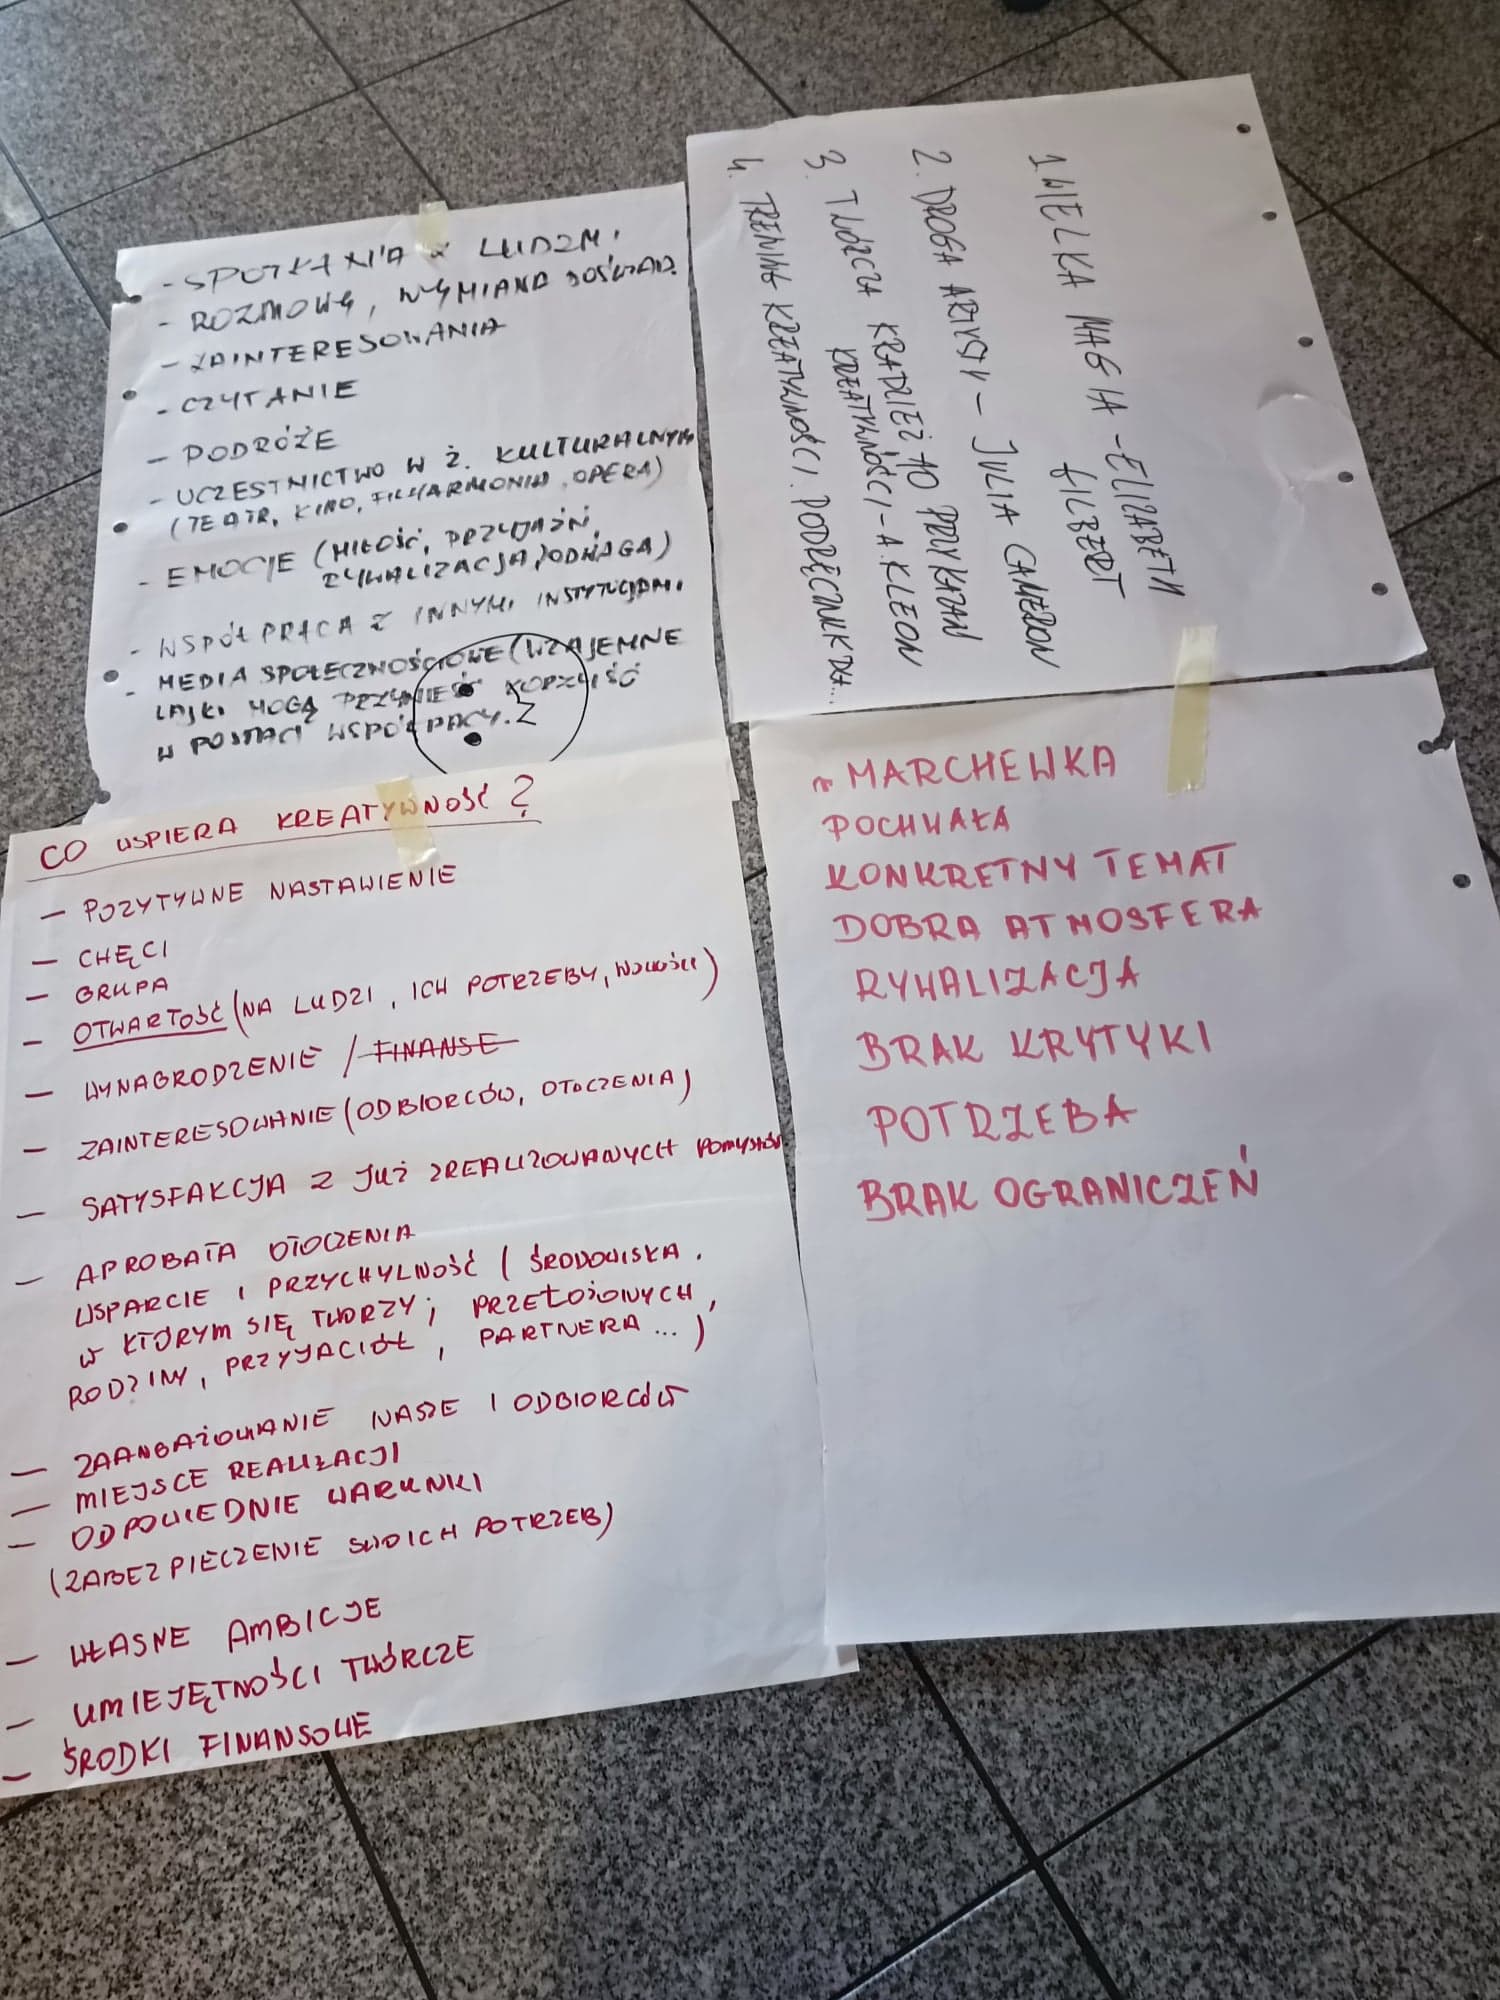 - SPOTKANIA Z LUDZMI
- ROZMOWY, WYMIANA DOŚWIAD.
- ZAINTERESOWANIA
- CZYTANIE
- PODRÓŻE
- UCZESTNICTWO W Ż. KULTURALNYM
(TEATR, KINO, FILHARMONIA, OPERA)
- EMOCJE (MIŁOŚĆ, PRZYJAŹŃ,
RYWALIZACJA, ODWAGA)
- WSPÓŁPRACA Z INNYMI INSTYTUCJAMI
- MEDIA SPOŁECZNOŚCIOWE (WZAJEMNE
LAJKI MOGĄ PRZYNIEŚĆ KORZYŚĆ
W POSTACI WSPÓŁPRACY.
1 WIELKA MAGIA - ELIZABETH
GILBERT
2. DROGA ARTYSTY - JULIA CAMERON
3. TWÓRCZA KRADZIEŻ 10 PRZYKAZAŃ
KREATYWNOŚCI - A. KLEON
4. TRENING KREATYWNOŚCI. PODRĘCZNIK DLA...
CO WSPIERA KREATYWNOŚĆ?
- POZYTYWNE NASTAWIENIE
- CHĘCI
- GRUPA
- OTWARTOŚĆ (NA LUDZI, ICH POTRZEBY, NOWOŚCI)
- WYNAGRODZENIE / FINANSE
- ZAINTERESOWANIE (ODBIORCÓW, OTOCZENIA)
- SATYSFAKCJA Z JUŻ ZREALIZOWANYCH POMYSŁÓW
- APROBATA OTOCZENIA
WSPARCIE I PRZYCHYLNOŚĆ (ŚRODOWISKA,
W KTÓRYM SIĘ TWORZY; PRZEŁOŻONYCH,
RODZINY, PRZYJACIÓŁ, PARTNERA...)
- ZAANGAŻOWANIE NASZE I ODBIORCÓW
- MIEJSCE REALIZACJI
- ODPOWIEDNIE WARUNKI
(ZABEZPIECZENIE SWOICH POTRZEB)
- WŁASNE AMBICJE
- UMIEJĘTNOŚCI TWÓRCZE
- ŚRODKI FINANSOWE
MARCHEWKA
POCHWAŁA
KONKRETNY TEMAT
DOBRA ATMOSFERA
RYWALIZACJA
BRAK KRYTYKI
POTRZEBA
BRAK OGRANICZEŃ